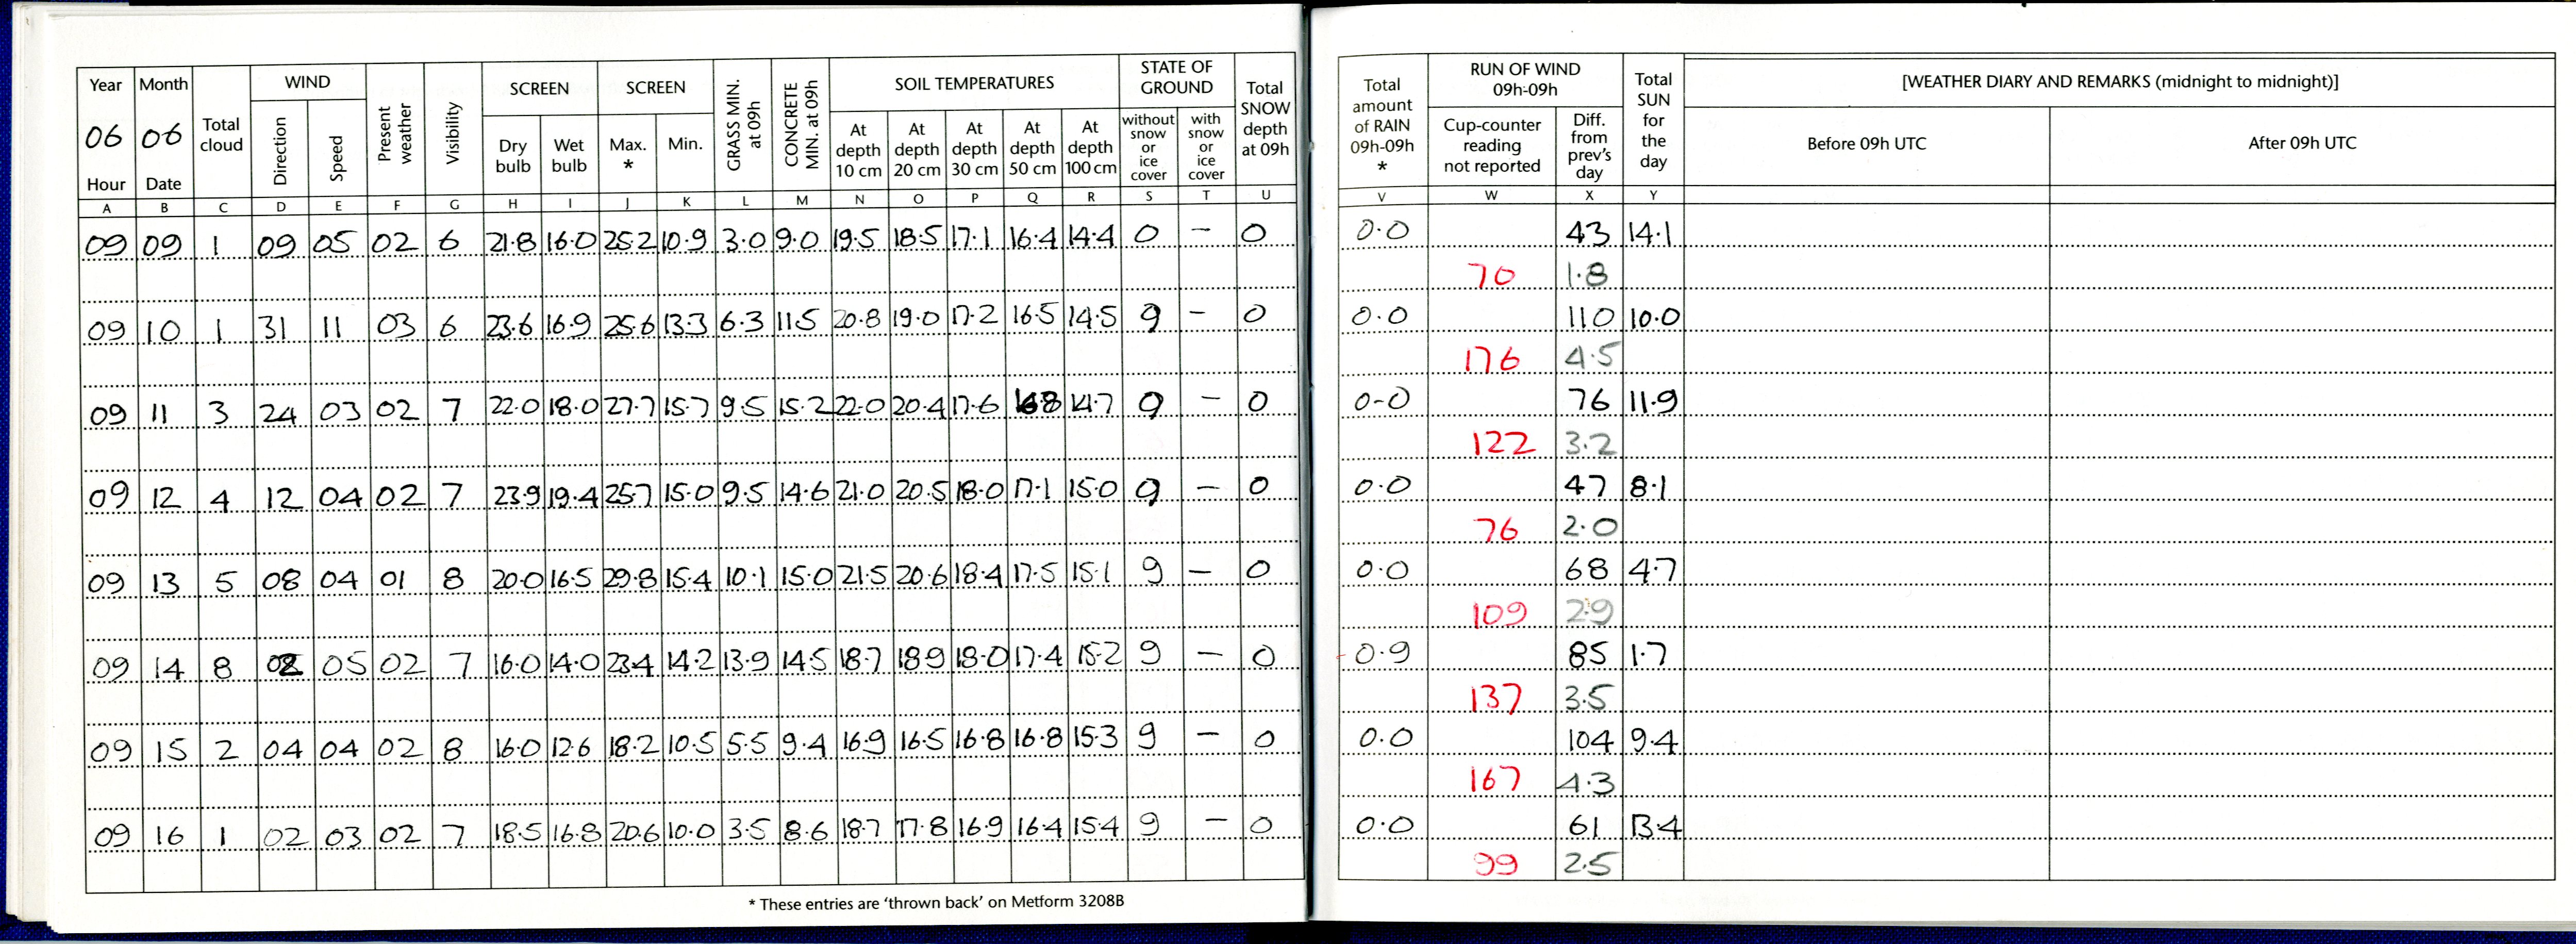 Year Month Total cloud WIND Present weather Visibility SCREEN SCREEN GRASS MIN. at 09h CONCRETE MIN. at 09h SOIL TEMPERATURES STATE OF GROUND Total SNOW depth at 09h
06 06 Direction Speed Dry bulb Wet bulb Max. * Min. At depth 10 cm At depth 20 cm At depth 30 cm At depth 50 cm At depth 100 cm without snow or ice cover with snow or ice cover
Hour Date
A B C D E F G H I J K L M N O P Q R S T U
09 09 1 09 05 02 6 21.8 16.0 25.2 10.9 3.0 9.0 19.5 18.5 17.1 16.4 14.4 0 - 0
09 10 1 31 11 03 6 23.6 16.9 25.6 13.3 6.3 11.5 20.8 19.0 17.2 16.5 14.5 9 - 0
09 11 3 24 03 02 7 22.0 18.0 27.7 15.7 9.5 15.2 22.0 20.4 17.6 16.8 14.7 9 - 0
09 12 4 12 04 02 7 23.9 19.4 25.7 15.0 9.5 14.6 21.0 20.5 18.0 17.1 15.0 9 - 0
09 13 5 08 04 01 8 20.0 16.5 29.8 15.4 10.1 15.0 21.5 20.6 18.4 17.5 15.1 9 - 0
09 14 8 02 05 02 7 16.0 14.0 23.4 14.2 13.9 14.5 18.7 18.9 18.0 17.4 15.2 9 - 0
09 15 2 04 04 02 8 16.0 12.6 18.2 10.5 5.5 9.4 16.9 16.5 16.8 16.8 15.3 9 - 0
09 16 1 02 03 02 7 18.5 16.8 20.6 10.0 3.5 8.6 18.7 17.8 16.9 16.4 15.4 9 - 0
* These entries are 'thrown back' on Metform 3208B
Total amount of RAIN 09h-09h * RUN OF WIND 09h-09h Total SUN for the day [WEATHER DIARY AND REMARKS (midnight to midnight)]
Cup-counter reading not reported Diff. from prev's day Before 09h UTC After 09h UTC
V W X Y
0.0 43 14.1
70 1.8
0.0 110 10.0
176 4.5
0-0 76 11.9
122 3.2
0.0 47 8.1
76 2.0
0.0 68 4.7
109 2.9
0.9 85 1.7
137 3.5
0.0 104 9.4
167 4.3
0.0 61 13.4
99 2.5